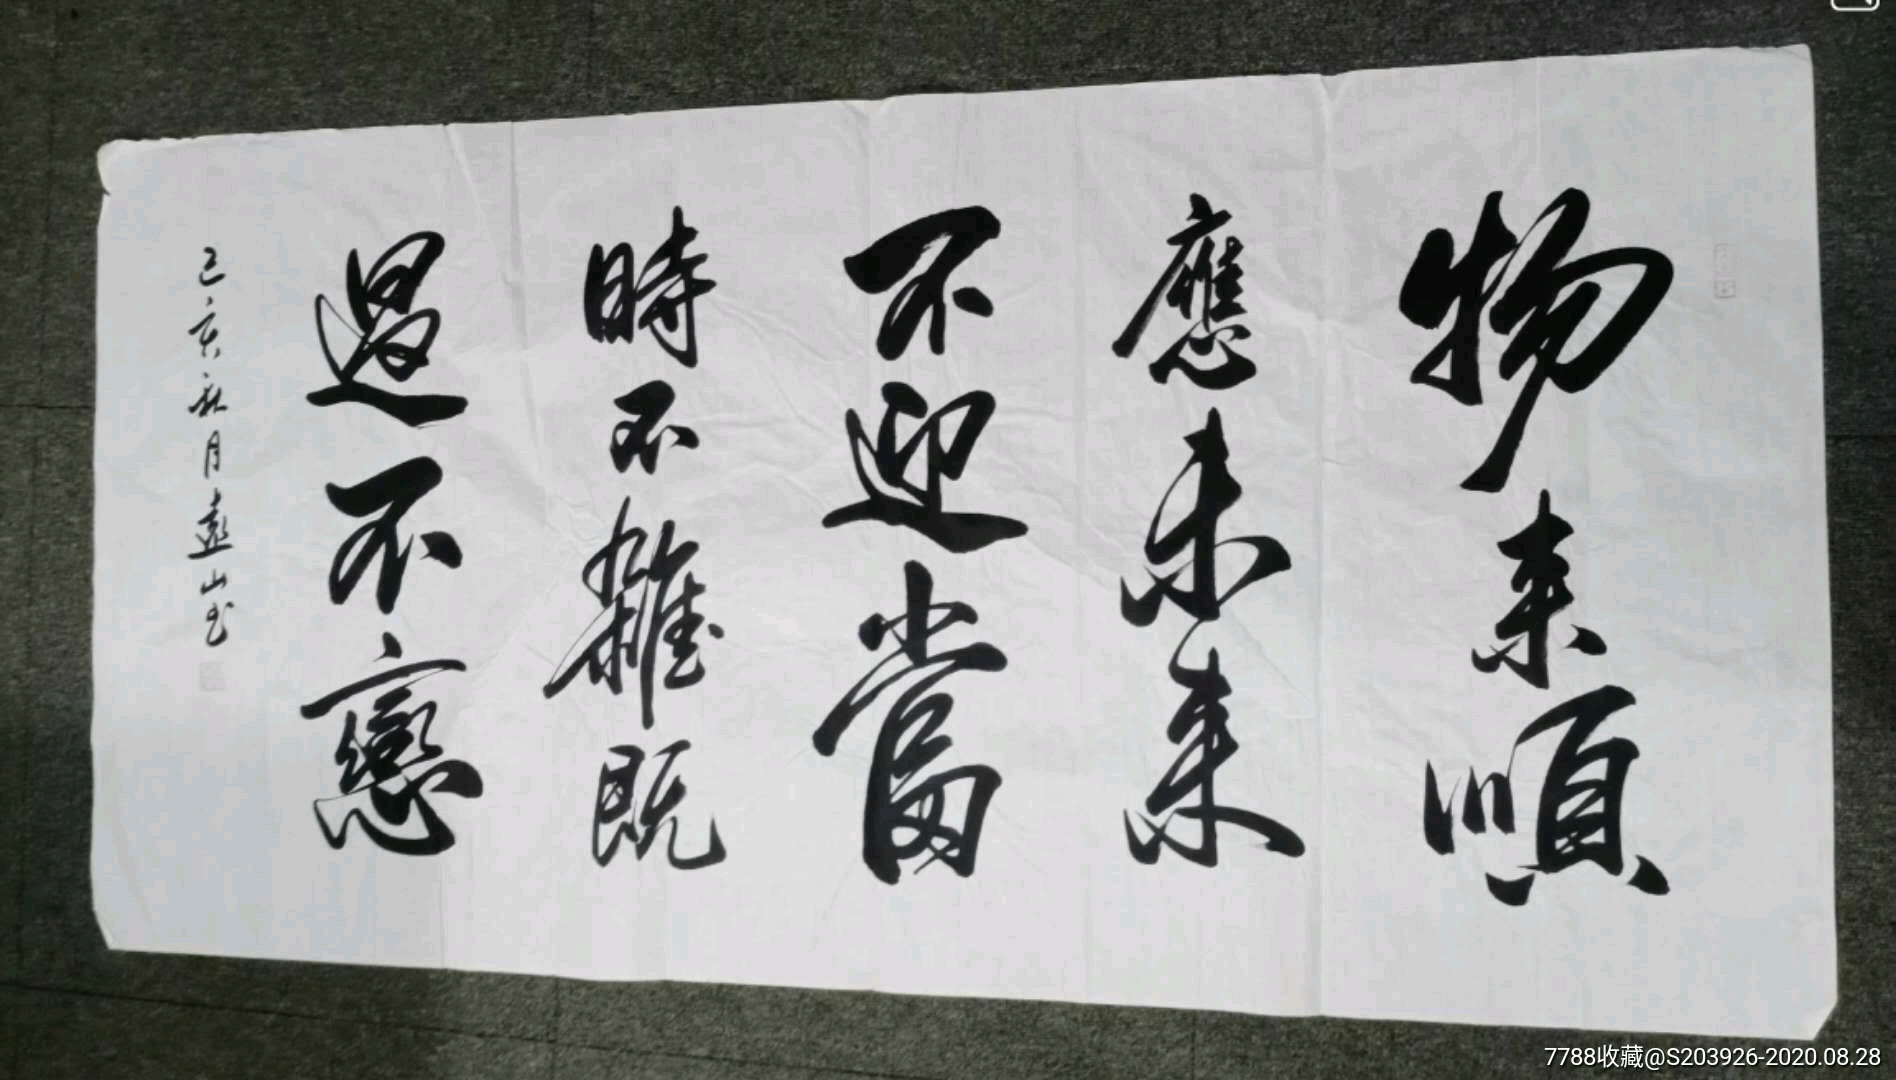 物来順
應未来
不迎當
時不雜既
過不戀
己亥秋月遠山书
7788收藏@S203926-2020.08.28